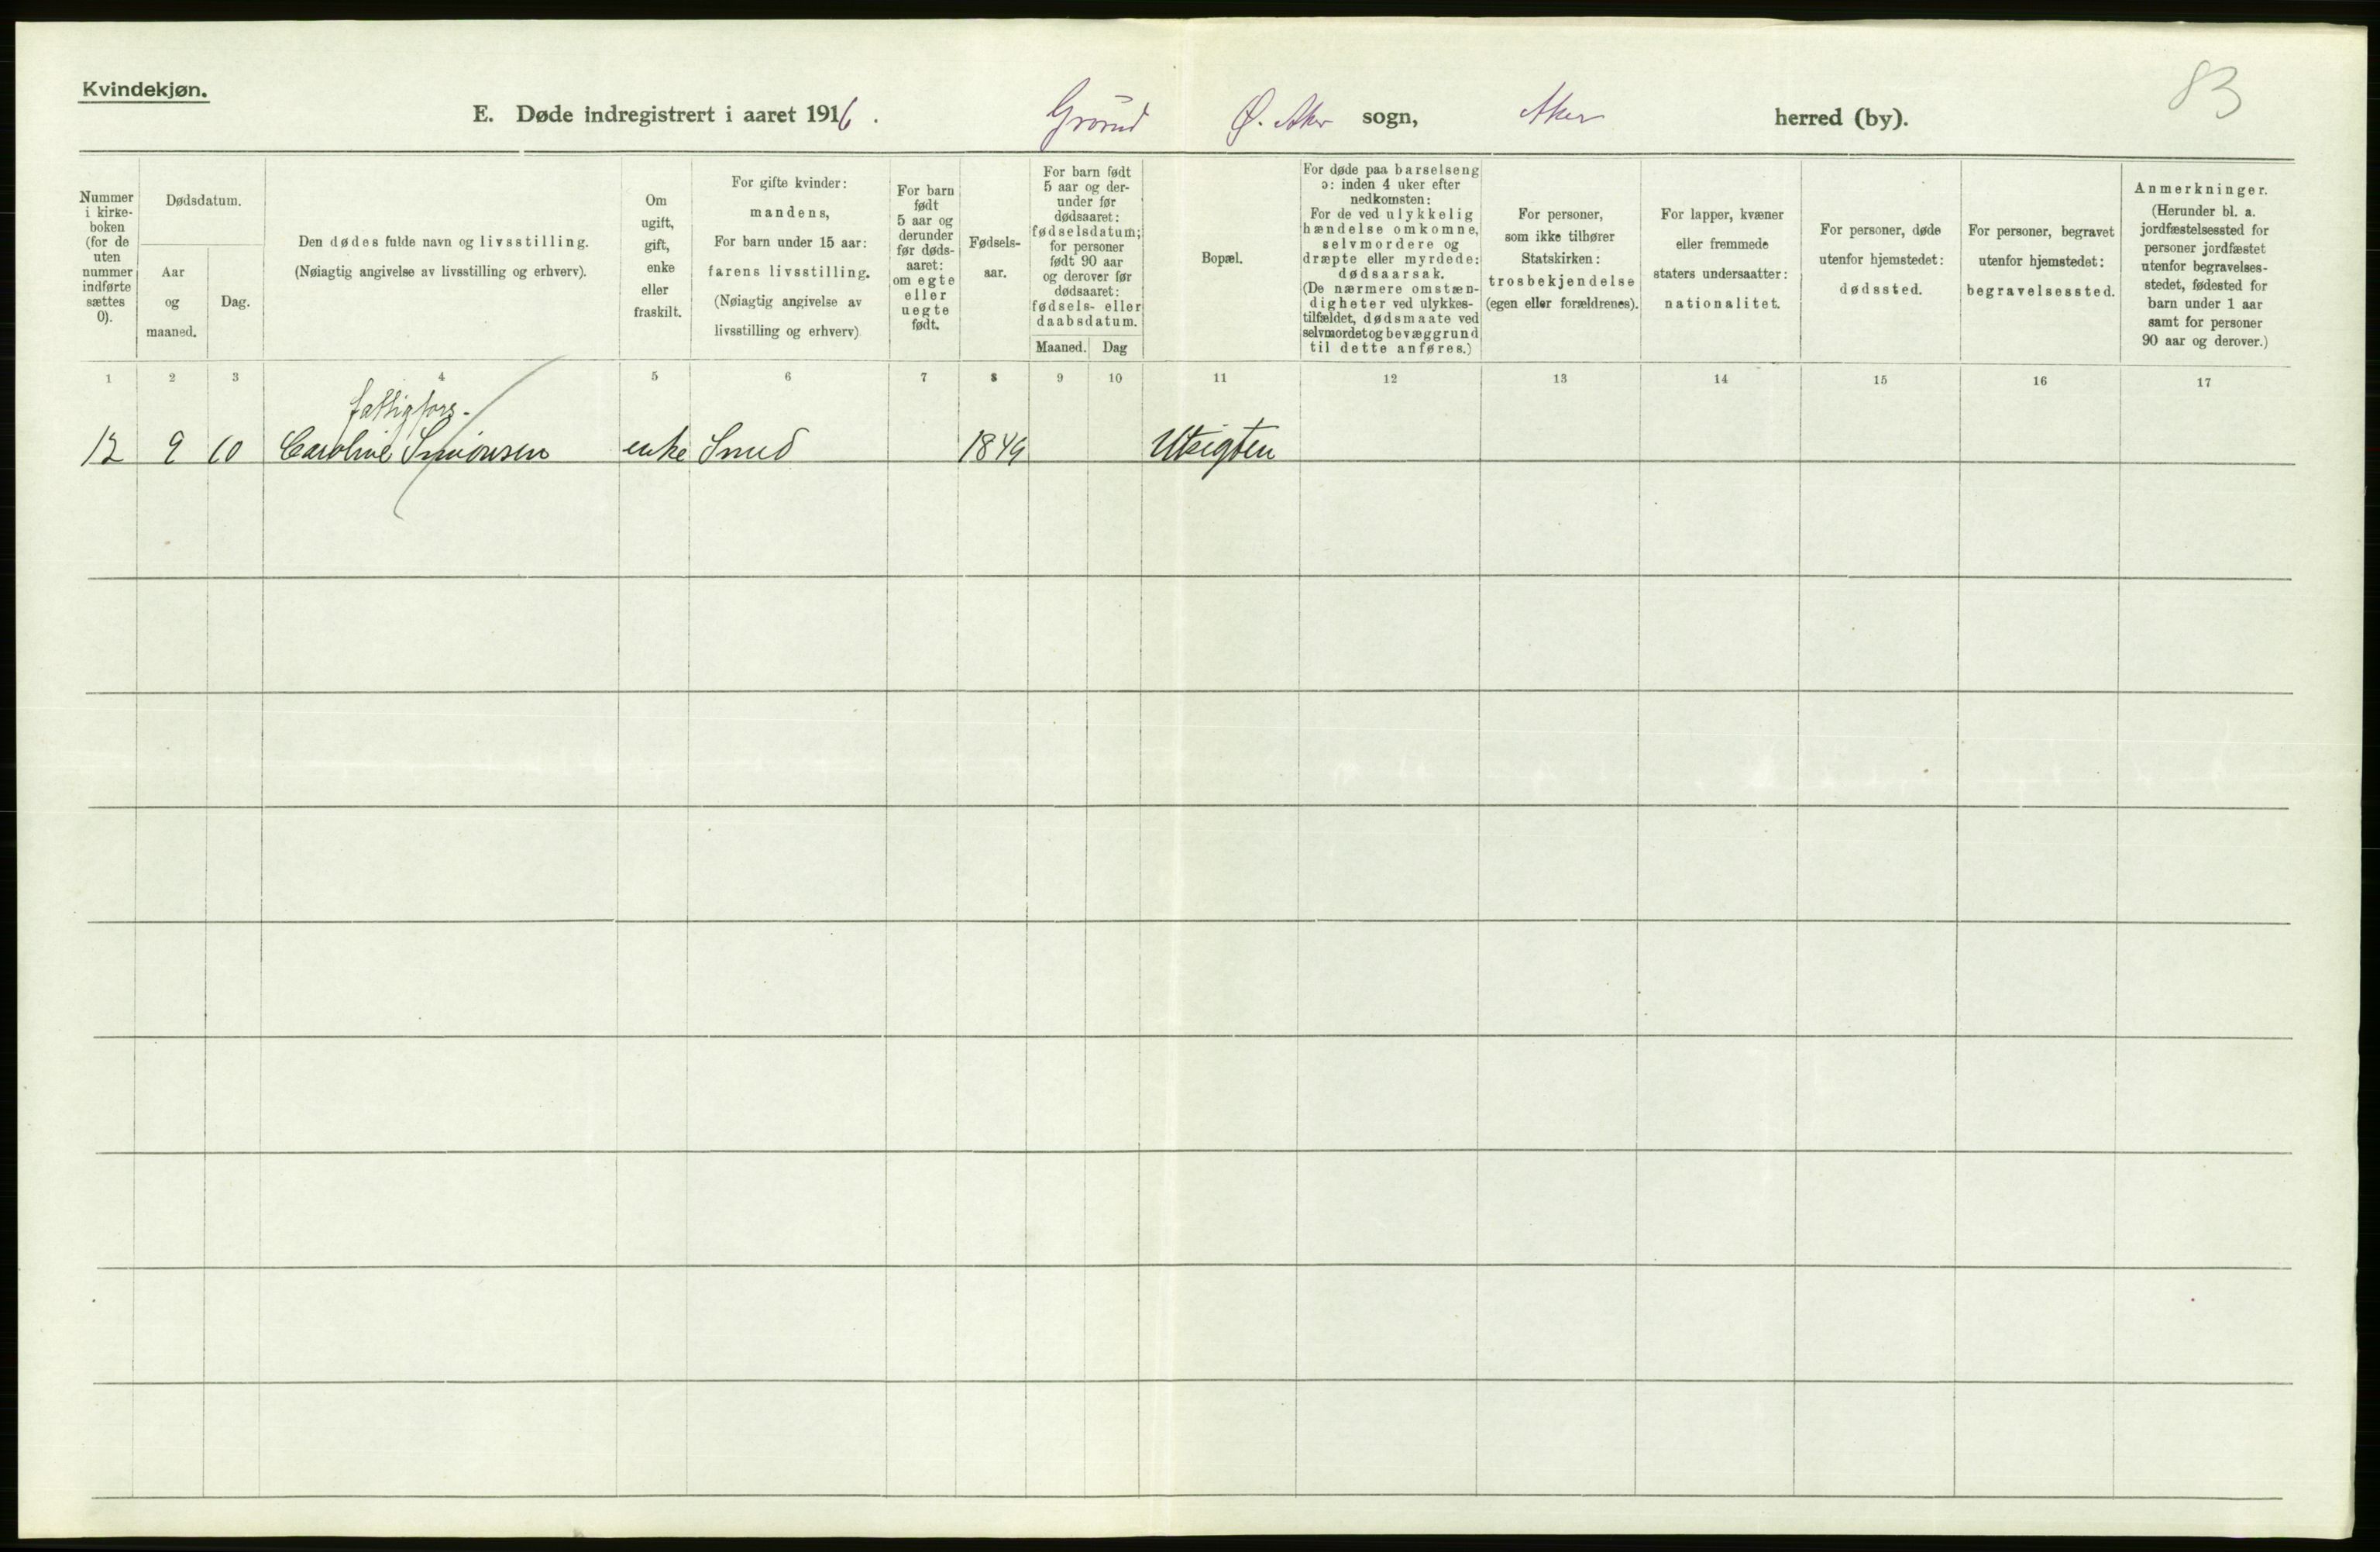 Kvindekjøn.
83
E. Døde indregistrert i aaret 1916. Grorud Ø. Aker sogn, Aker herred (by).
Nummer
i kirke-
boken
(for de
uten
nummer
indførte
sættes
0).
Dødsdatum.
Aar
og
maaned.
Dag.
Den dødes fulde navn og livsstilling.
(Nøiagtig angivelse av livsstilling og erhverv).
Om
ugift,
gift,
enke
eller
fraskilt.
For gifte kvinder:
mandens,
For barn under 15 aar:
farens livsstilling.
(Nøiagtig angivelse av
livsstilling og erhverv)
For barn
født
5 aar og
derunder
før døds-
aaret:
om egte
eller
uegte
født.
Fødsels-
aar.
For barn født
5 aar og der-
under før
dødsaaret:
fødselsdatum;
for personer
født 90 aar
og derover før
dødsaaret:
fødsels- eller
daabsdatum.
Maaned.
Dag
Bopæl.
For døde paa barselseng
ɔ: inden 4 uker efter
nedkomsten:
For de ved ulykkelig
hændelse omkomne,
selvmordere og
dræpte eller myrdede:
dødsaarsak.
(De nærmere omstæn-
digheter ved ulykkes-
tilfældet, dødsmaate ved
selvmordet og bevæggrund
til dette anføres.)
For personer,
som ikke tilhører
Statskirken:
trosbekjendelse
(egen eller forældrenes).
For lapper, kvæner
eller fremmede
staters undersaatter:
nationalitet.
For personer, døde
utenfor hjemstedet:
dødssted.
For personer, begravet
utenfor hjemstedet:
begravelsessted.
Anmerkninger.
(Herunder bl. a.
jordfæstelsessted for
personer jordfæstet
utenfor begravelses-
stedet, fødested for
barn under 1 aar
samt for personer
90 aar og derover.)
1 2 3 4 5 6 7 8 9 10 11 12 13 14 15 16 17
fattigfors.
12 9 10 Caroline Simonsen enke Smed 1849 Utsigten